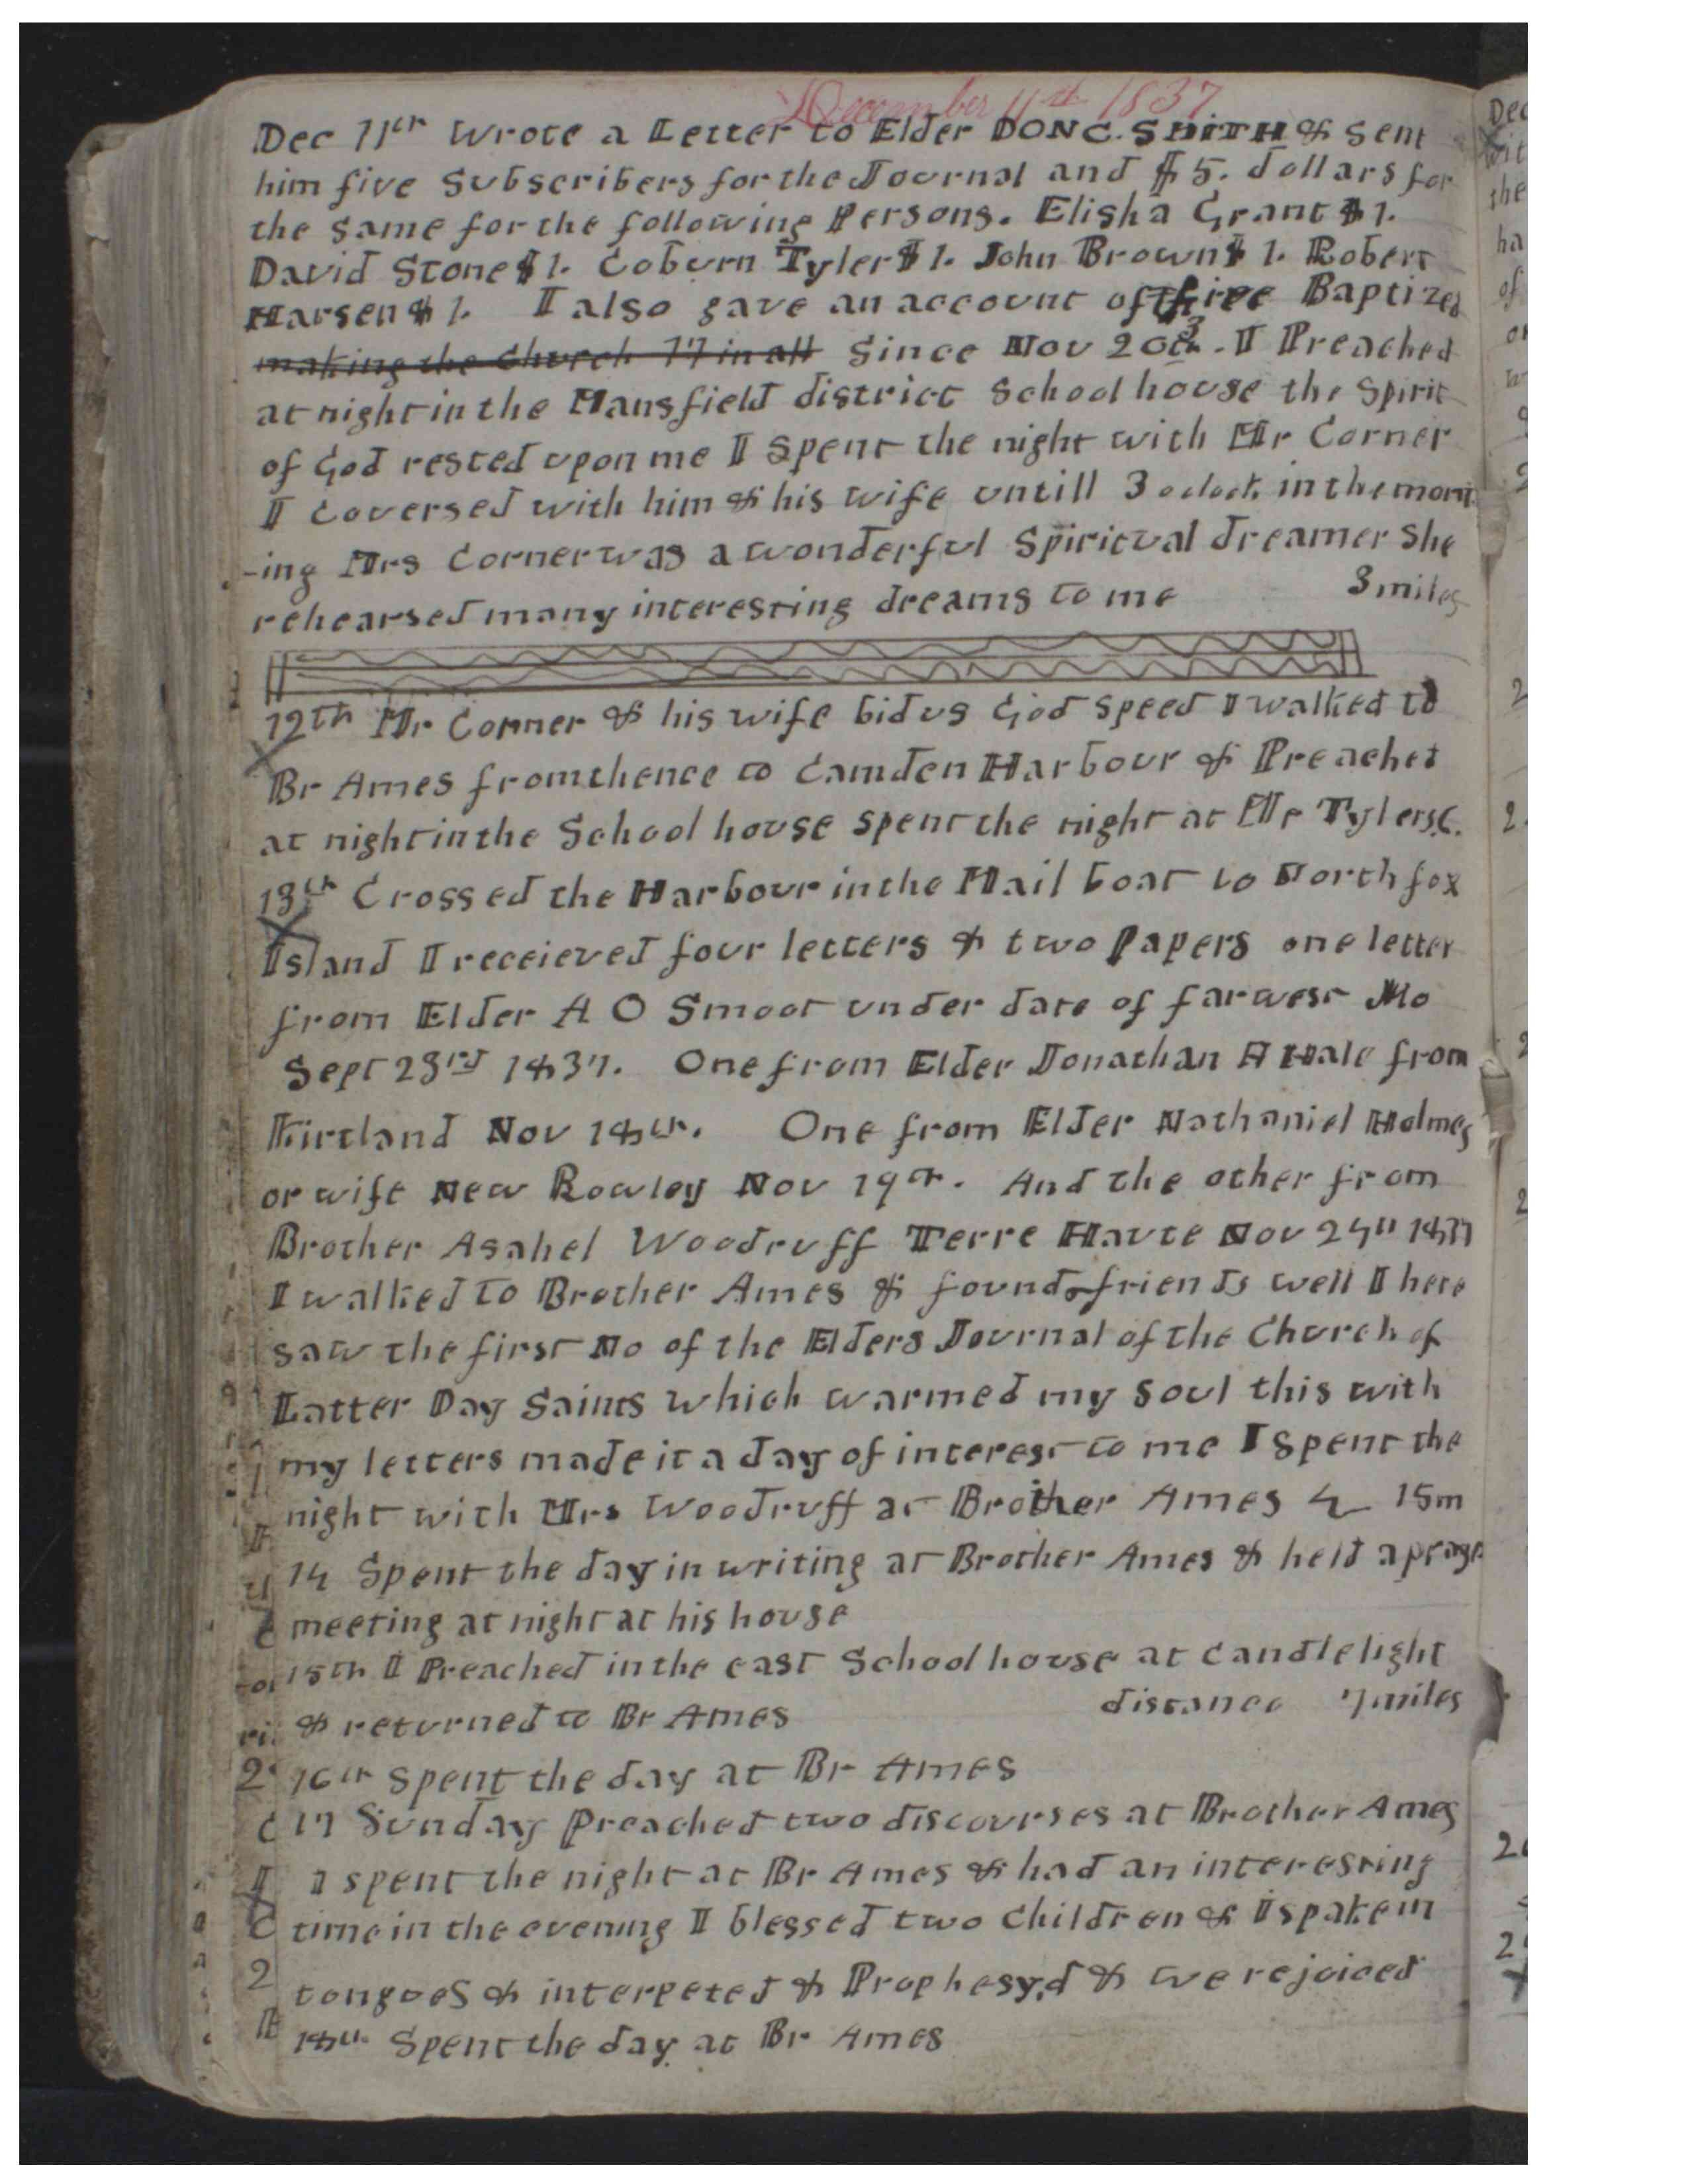 December 11th 1837
Dec 11th Wrote a Letter to Elder DON C. SMITH & Sent
him five Subscribers for the Journal and $5. dollars for
the same for the following Persons. Elisha Grant $1.
David Stone $1. Coburn Tyler $1. John Brown $1. Robert
Harsen $1. I also gave an account of Baptized
making the Church 17 in all Since Nov 20th. I Preached
at night in the Mansfield district School house the Spirit
of God rested upon me I Spent the night with Mr Corner
I Coversed with him & his wife untill 3 oclock in the morn
-ing Mrs Corner was a wonderful Spiritual dreamer She
rehearsed many interesting dreams to me 3 miles
12th Mr Corner & his wife bid us God speed I walked to
Br Ames from thence to Camden Harbour & Preached
at night in the School house spent the night at Mr Tylers C.
13th Crossed the Harbour in the Mail boat to North fox
Island I receieved four letters & two Papers one letter
from Elder A O Smoot under date of farwest Mo
Sept 23rd 1837. One from Elder Jonathan H Hale from
Kirtland Nov 18th. One from Elder Nathaniel Holmes
or wife New Rowley Nov 19th. And the other from
Brother Asahel Woodruff Terre Haute Nov 24th 1837
I walked to Brother Ames & found friends well I here
saw the first No of the Elders Journal of the Church of
Latter Day Saints which warmed my soul this with
my letters made it a day of interest to me I spent the
night with Mrs Woodruff at Brother Ames 15m
14 Spent the day in writing at Brother Ames & held a prayer
meeting at night at his house
15th I Preached in the east School house at candle light
& returned to Br Ames distance 7 miles
16th Spent the day at Br Ames
17 Sunday Preached two discourses at Brother Ames
I spent the night at Br Ames & had an interesting
time in the evening I blessed two Children & I spake in
tongues & interpeted & Prophesy,d & we rejoiced
18th Spent the day at Br Ames